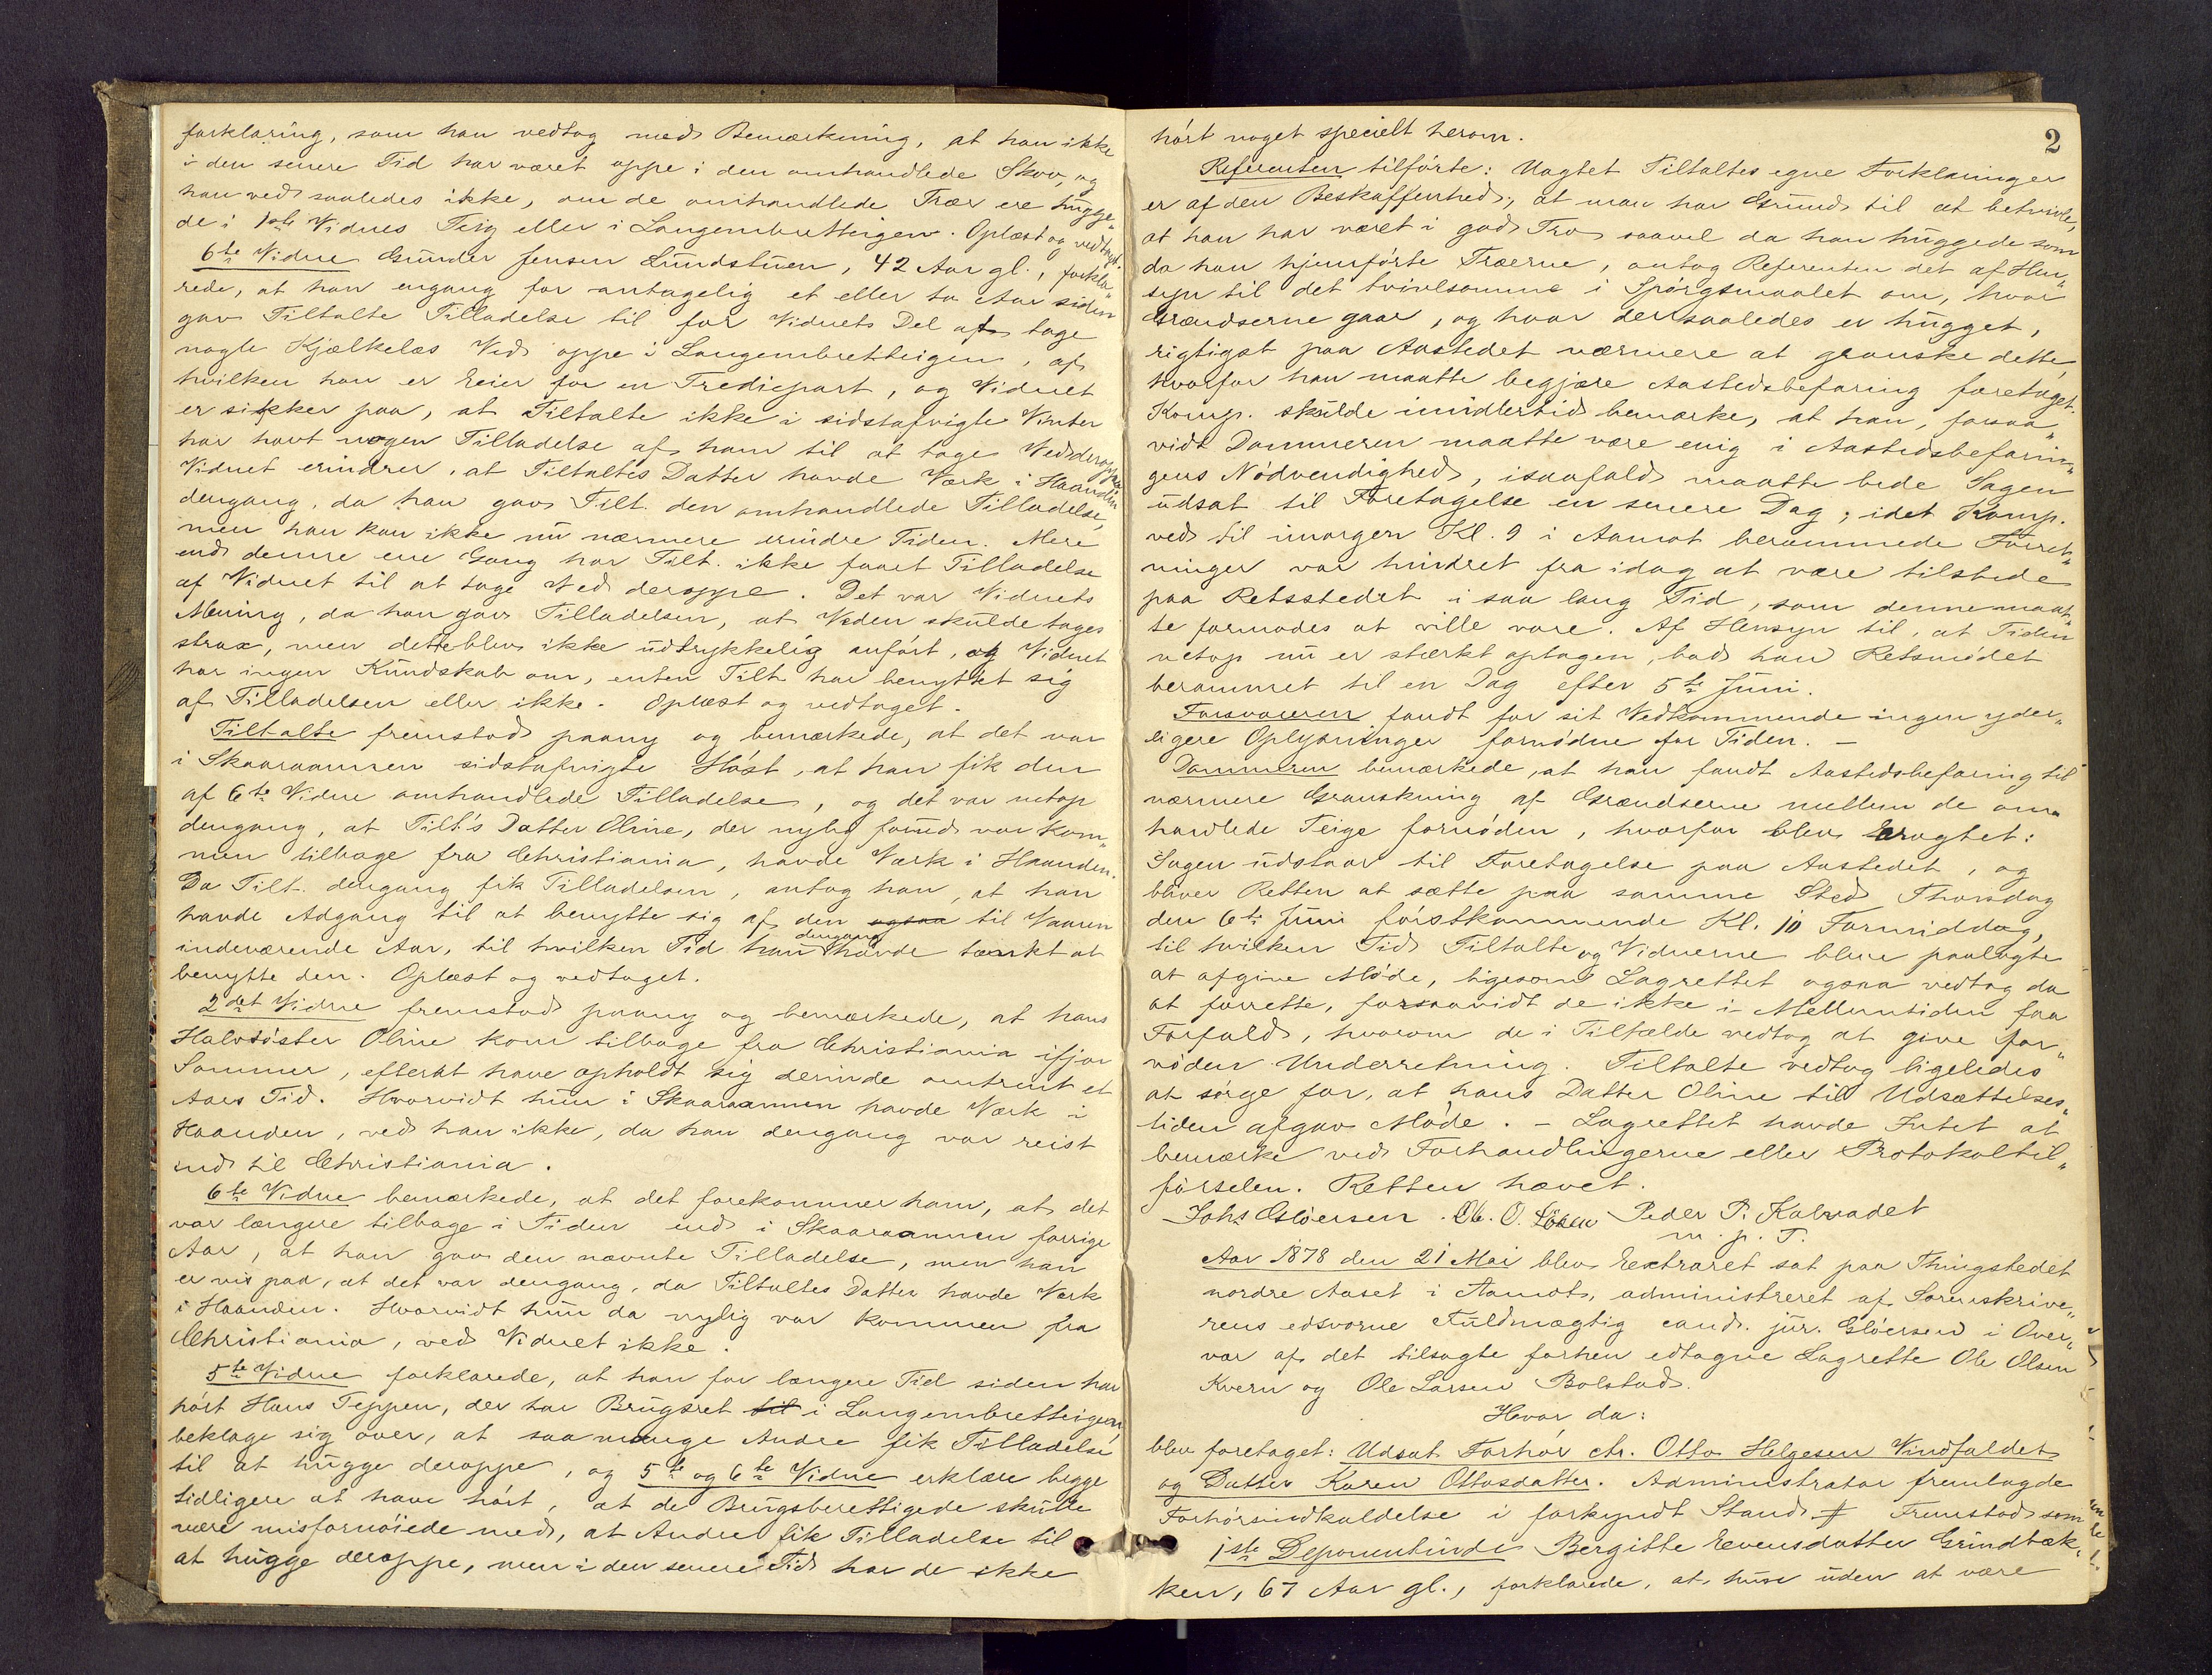 forklaring, som han vedtog med Bemærkning, at han ikke
i den senere Tid har været oppe i den omhandlede Skov, og
han ved saaledes ikke, om de omhandlede Trær ere hugge„
de i 1ste Vidnes Teig eller i Langembretteigen. Oplæst og vedtaget.
6te Vidne Gunder Jensen Lundstuen, 42 Aar gl., forkla„
rede, at han engang for antagelig et eller to Aar siden
gav Tiltalte Tilladelse til for Vidnets Del at tage
nogle Kjælkelæs Ved oppe i Langembretteigen, af
hvilken han er Eier for en Trediepart, og Vidnet
er sikker paa, at Tiltalte ikke i sidstafvigte Vinter
har havt nogen Tilladelse af ham til at tage Ved deroppe.
Vidnet erindrer, at Tiltaltes Datter havde Værk i Haanden
dengang, da han gav Tilt. den omhandlede Tilladelse,
men han kan ikke nu nærmere erindre Tiden. Mere
end denne ene Gang har Tilt. ikke faaet Tilladelse
af Vidnet til at tage Ved deroppe. Det var Vidnets
Mening, da han gav Tilladelsen, at Veden skulde tages
strax, men dette blev ikke udtrykkelig anført, og Vidnet
har ingen Kundskab om, enten Tilt. har benyttet sig
af Tilladelsen eller ikke. Oplæst og vedtaget.
Tiltalte fremstod paany og bemærkede, at det var
i Skaaraannen sidstafvigte Høst, at han fik den
af 6te Vidne omhandlede Tilladelse, og det var netop
dengang, at Tilt's Datter Oline, der nylig forud var kom„
men tilbage fra Christiania, havde Værk i Haanden.
Da Tilt. dengang fik Tilladelsen, antog han, at han
havde Adgang til at benytte sig af den ogsaa til Vaaren
indeværende Aar, til hvilken Tid han dengang havde tænkt at
benytte den. Oplæst og vedtaget.
2det Vidne fremstod paany og bemærkede, at hans
Halvsøster Oline kom tilbage fra Christiania ifjor
Sommer, efterat have opholdt sig derinde omtrent et
Aars Tid. Hvorvidt hun i Skaaraannen havde Værk i
Haanden, ved han ikke, da han dengang var reist
ind til Christiania.
6te Vidne bemærkede, at det forekommer ham, at det
var længere tilbage i Tiden end i Skaaraannen forrige
Aar, at han gav den nævnte Tilladelse, men han
er vis paa, at det var dengang, da Tiltaltes Datter havde Værk
i Haanden. Hvorvidt hun da nylig var kommen fra
Christiania, ved Vidnet ikke.
5te Vidne forklarede, at han for længere Tid siden har
hørt Hans Teppen, der har Brugsret til i Langembretteigen,
beklage sig over, at saa mange Andre fik Tilladelse
til at hugge deroppe, og 5te og 6te Vidne erklære begge
tidligere at have hørt, at de Brugsberettigede skulle
være misfornøiede med, at Andre fik Tilladelse til
at hugge deroppe, men i den senere Tid har de ikke
2
hørt noget specielt herom.
Referenten tilførte: Uagtet Tiltaltes egne Forklaringer
er af den Beskaffenhed, at man har Grund til at betvivle,
at han har været i god Tro saavel da han huggede som
da han hjemførte Træerne, antog Referenten det af Hen„
syn til det tvivlsomme i Spørgsmaalet om, hvor
Grændserne gaar, og hvor der saaledes er hugget,
rigtigst paa Aastedet nærmere at granske dette,
hvorfor han maatte begjære Aastedsbefaring foretaget.
Komp. skulde imidlertid bemærke, at han, forsaa„
vidt Dommeren maatte være enig i Aastedsbefarin„
gens Nødvendighed, isaafald maatte bede Sagen
udsat til Foretagelse en senere Dag; idet Komp.
ved til imorgen Kl. 9 i Aamot berammede Forret„
ninger var hindret fra idag at være tilstede
paa Retsstedet i saa lang Tid, som denne maat„
te formodes at ville vare. Af Hensyn til, at Tiden
netop nu er stærkt optagen, bad han Retsmødet
berammet til en Dag efter 5te Juni.
Forsvareren fandt for sit Vedkommende ingen yder„
ligere Oplysninger fornødne for Tiden. –
Dommeren bemærkede, at han fandt Aastedsbefaring til
nærmere Granskning af Grændserne mellem de om„
handlede Teige fornøden, hvorfor blev eragtet:
Sagen udstaar til Foretagelse paa Aastedet, og
bliver Retten at sætte paa samme Sted Thorsdag
den 6te Juni førstkommende Kl. 10 Formiddag,
til hvilken Tid Tiltalte og Vidnerne bleve paalagte
at afgive Møde, ligesom Lagrettet ogsaa vedtog da
at forrette, forsaavidt de ikke i Mellemtiden faa
Forfald, hvorom de i Tilfælde vedtog at give for„
nøden Underretning. Tiltalte vedtog ligeledes
at sørge for, at hans Datter Oline til Udsættelses„
tiden afgav Møde. – Lagrettet havde Intet at
bemærke ved Forhandlingerne eller Protokoltil„
førselen. Retten hævet.
Johs Gløersen. Ole. O. Peder P. Kalvadet
m. p. T.
Aar 1878 den 21 Mai blev Extraret sat paa Thingstedet
nordre Aaset i Aamot, administreret af Sorenskrive„
rens edsvorne Fuldmægtig cand. jur. Gløersen i Over„
vær af det tilsagte forhen edtagne Lagrette Ole Olsen
Kvern og Ole Larsen Bolstad.
Hvor da:
blev foretaget: Udsat Forhør ctr. Otto Helgesen Vindfaldet
og Datter Karen Ottosdatter. Administrator fremlagde
Forhørsindkaldelse i forkyndt Stand # Fremstod som
1ste Deponentinde Bergitte Evensdatter Grindbæk„
ken, 67 Aar gl., forklarede, at hun uden at være